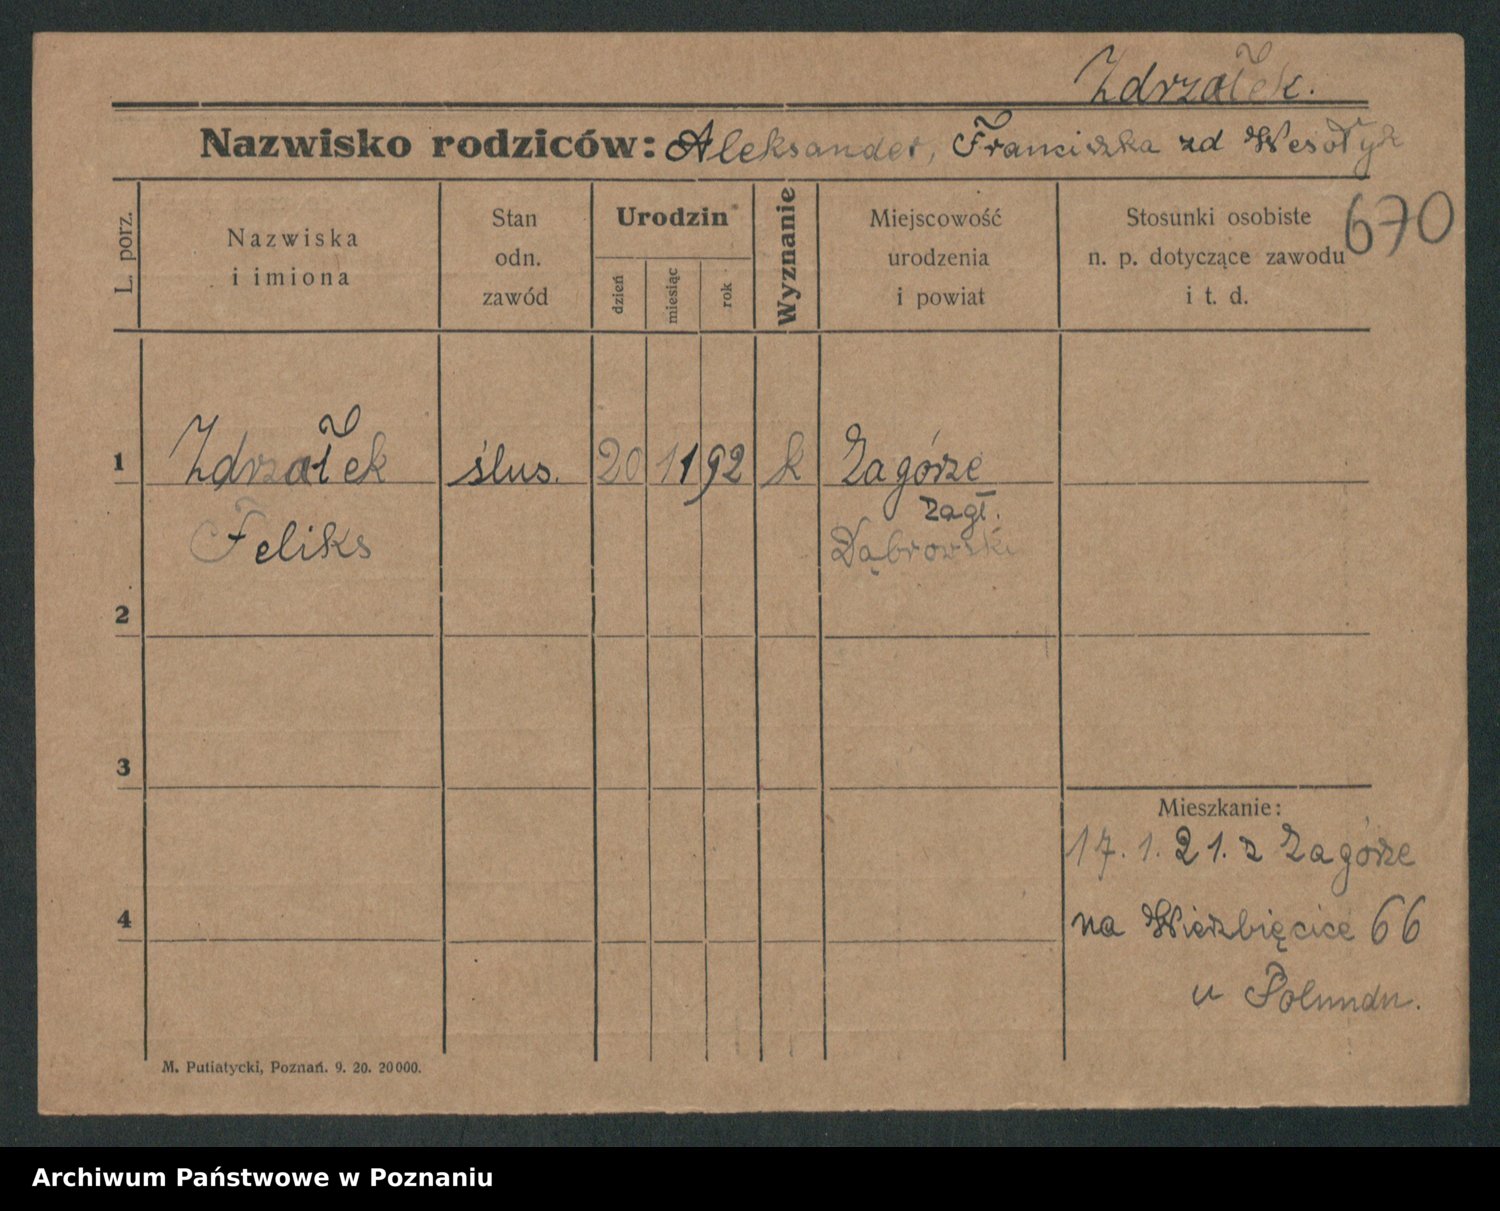 Zdrzałek.
Nazwisko rodziców: Aleksander, Franciszka zd Wesołych
670
L. porz.
Nazwiska
i imiona
Stan
odn.
zawód
Urodzin
dzień
miesiąc
rok
Wyznanie
Miejscowość
urodzenia
i powiat
Stosunki osobiste
n. p. dotyczące zawodu
i t. d.
1 Zdrzałek ślus. 20 11 92 k Zagórze
zagł.
Feliks Dąbrowski
2
3
Mieszkanie:
17. 1. 21. z Zagórze
4 na Wierzbięcice 66
u
M. Putiatycki, Poznań. 9. 20. 20000.
Archiwum Państwowe w Poznaniu